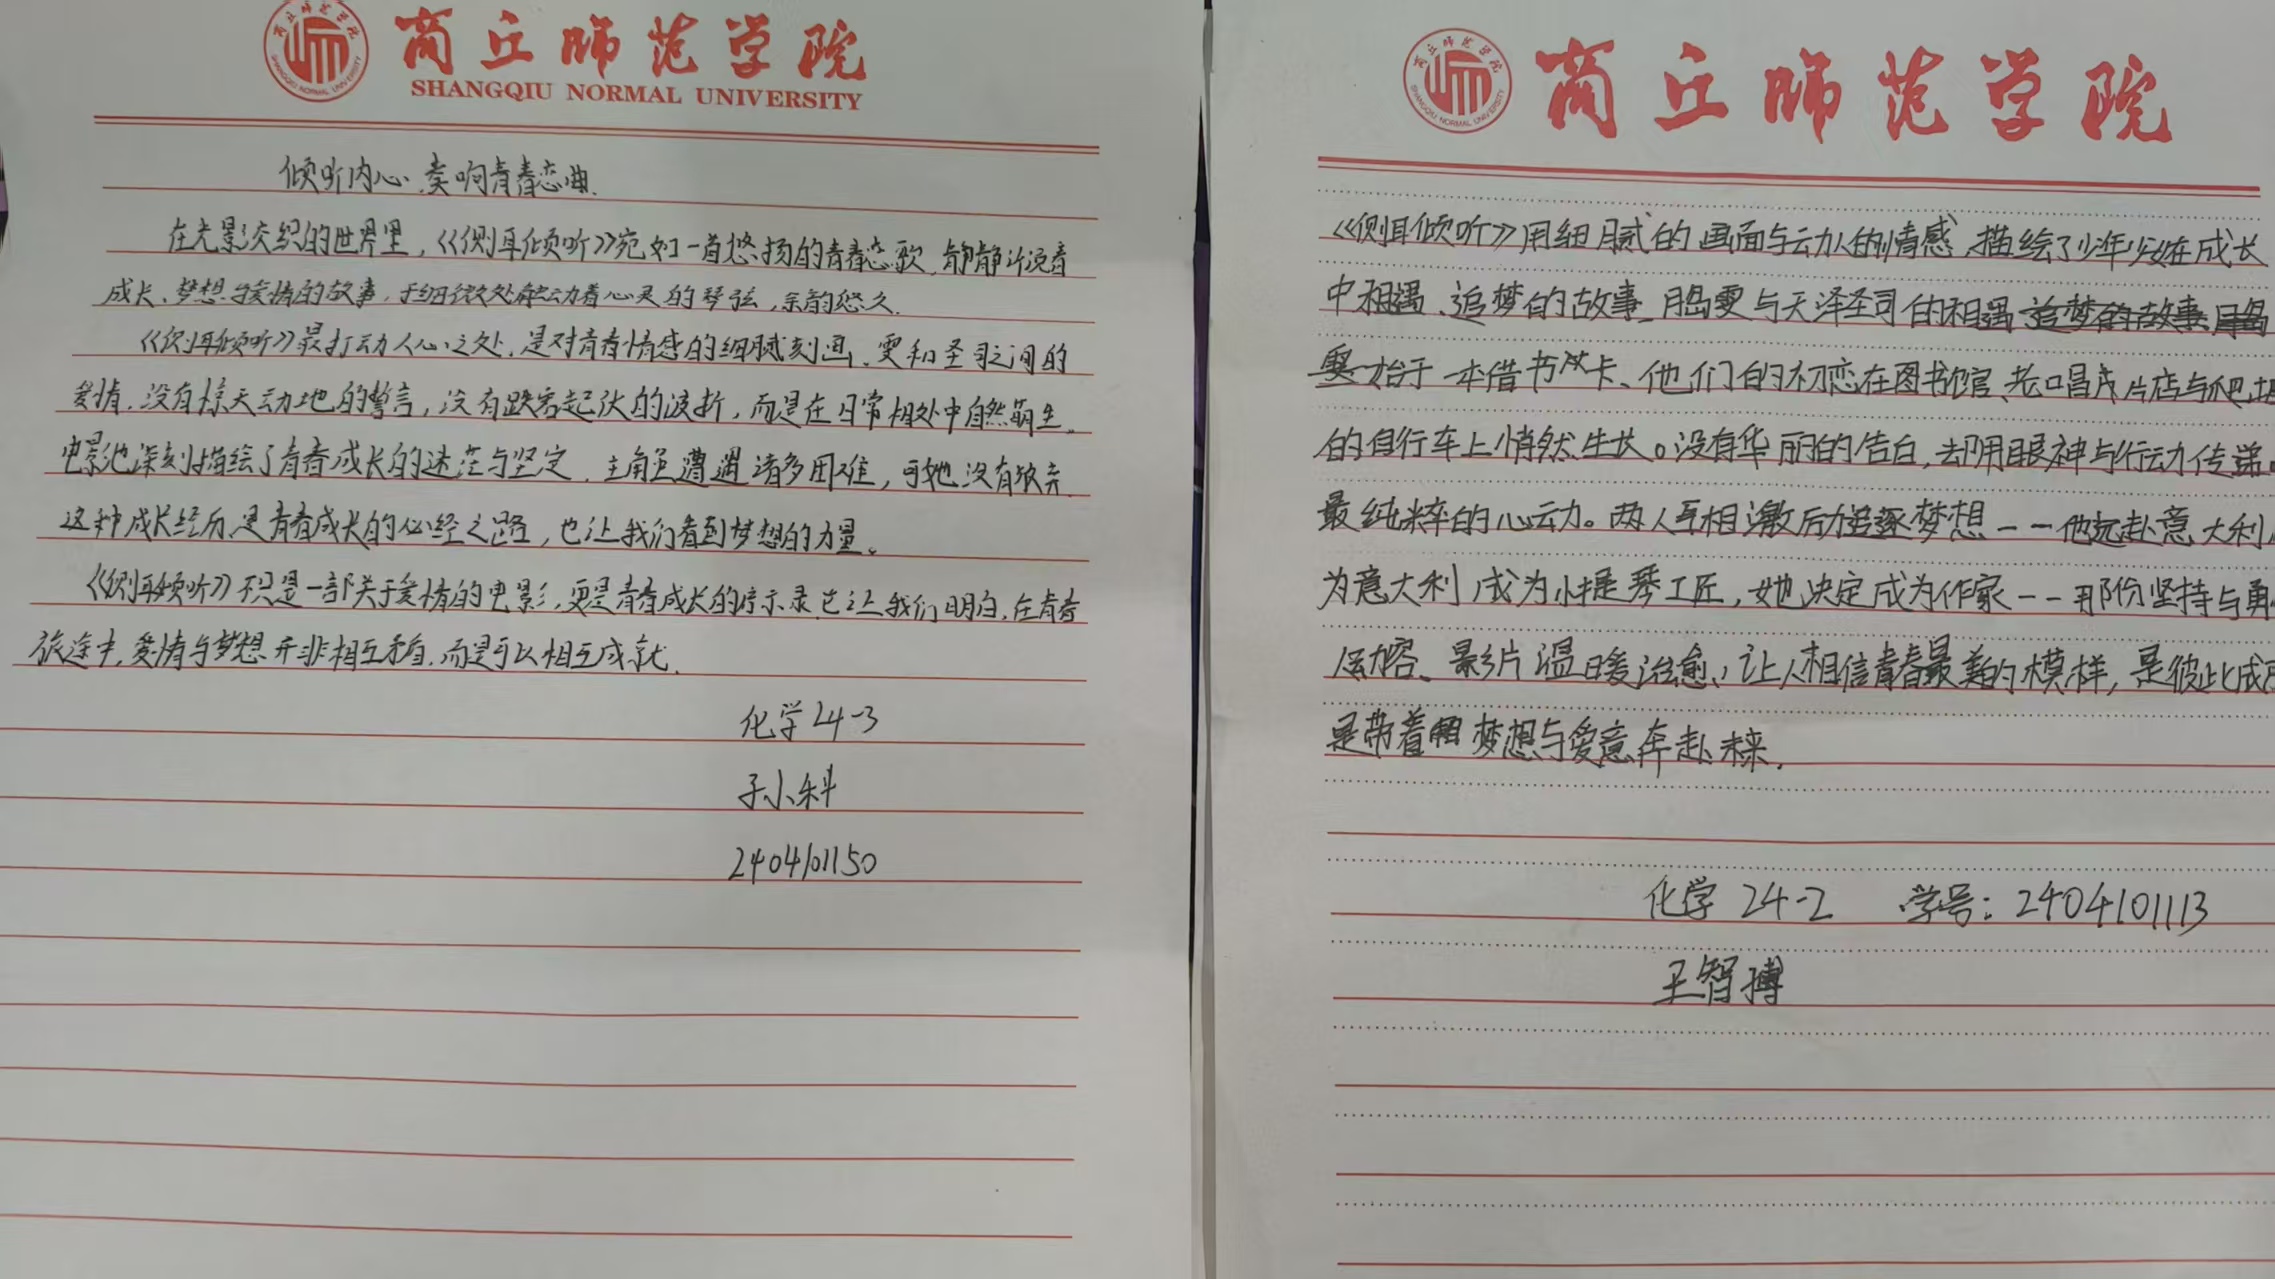 商丘师范学院
SHANGQIU NORMAL UNIVERSITY
倾听内心,奏响青春恋曲.
在光影交织的世界里,《侧耳倾听》宛如一首悠扬的青春恋歌,静静诉说着
成长、梦想与爱情的故事,于细微处触动着心灵的琴弦,余韵悠久.
《侧耳倾听》最打动人心之处,是对青春情感的细腻刻画、雯和圣司之间的
爱情,没有惊天动地的誓言,没有跌宕起伏的波折,而是在日常相处中自然萌生。
电影也深刻描绘了青春成长的迷茫与坚定,主角虽遭遇诸多困难,可她没有放弃.
这种成长经历是青春成长的必经之路,也让我们看到梦想的力量。
《侧耳倾听》不只是一部关于爱情的电影,更是青春成长的启示录.它让我们明白,在青春
旅途中,爱情与梦想并非相互矛盾,而是可以相互成就.
化学24-3
子小科
2404101150
商丘师范学院
《侧耳倾听》用细腻的画面与动人的情感,描绘了少年少女在成长
中相遇、追梦的故事,月岛雯与天泽圣司的相遇追梦的故事,月岛
雯始于一本借书卡、他们的初恋在图书馆、老唱片店与爬坡
的自行车上悄然生长。没有华丽的告白,却用眼神与行动传递
最纯粹的心动。两人互相激励追逐梦想——他远赴意大利,
为意大利成为小提琴工匠,她决定成为作家——那份坚持与勇
人动容、影片温暖治愈,让人相信青春最美的模样,是彼此成
是带着梦想与爱意奔赴未来.
化学 24-2 学号:2404101113
王智搏